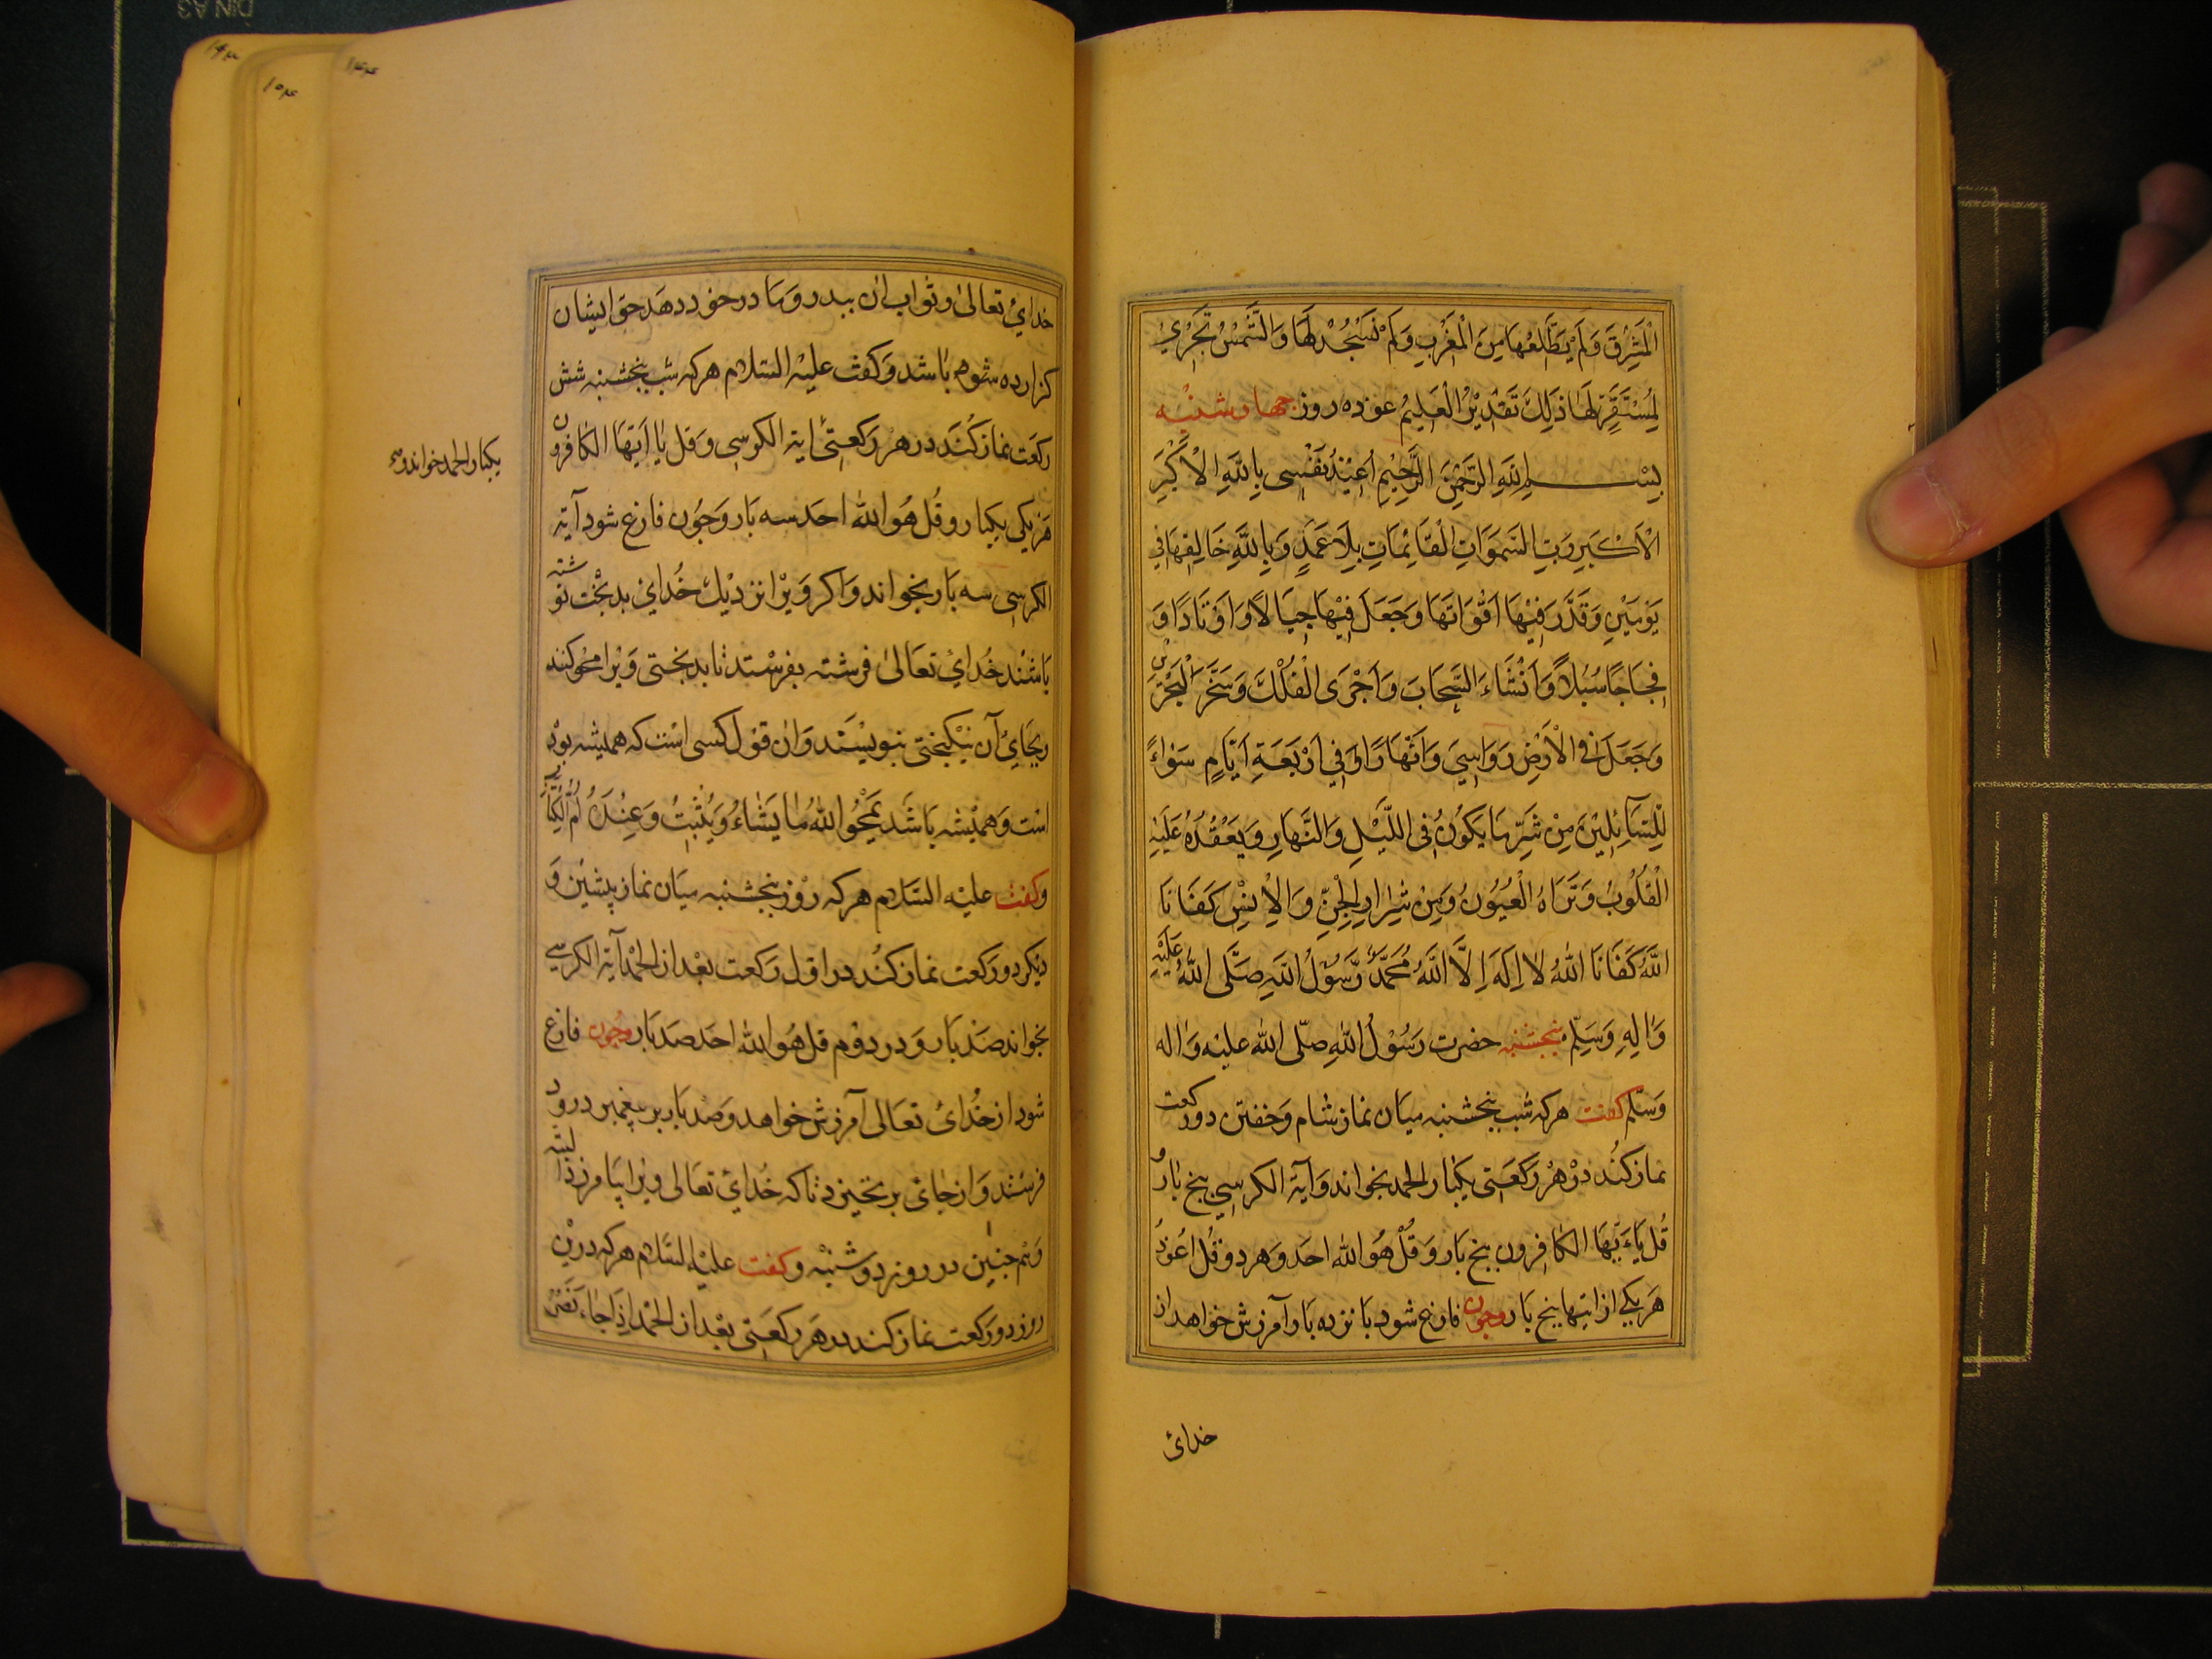 الْمَشْرِقِ وَلَمْ يَطَّلِعْهَا مِنَ الْمَغْرِبِ وَلَمْ نَسْجُدْ لَهَا وَالشَّمْسُ تَجْرِيْ
لِمُسْتَقَرٍّ لَهَا ذٰلِكَ تَقْدِيْرُ الْعَلِيْمِ عوذه روز چهارشنبه
بِسْمِ اللهِ الرَّحْمٰنِ الرَّحِيْمِ اُعِيْذُ نَفْسِى بِاللهِ الْاَكْبَرِ
الْاَكْبَرِ رَبِّ السَّمَوَاتِ الْقَائِمَاتِ بِلَا عَمَدٍ وَبِاللهِ خَالِقِهَا فِي
يَوْمَيْنِ وَقَدَّرَ فِيْهَا اَقْوَاتَهَا وَجَعَلَ فِيْهَا جِبَالًا وَاَوْتَادًا وَ
فِجَاجًا سُبُلًا وَاَنْشَاءَ السَّحَابَ وَاَجْرَى الْفُلْكَ وَسَخَّرَ الْبَحْرَيْنِ
وَجَعَلَ فِى الْاَرْضِ رَوَاسِيَ وَاَنْهَارًا فِي اَرْبَعَةِ اَيَّامٍ سَوَاءً
لِلسَّآئِلِيْنَ مِنْ شَرِّ مَا يَكُوْنُ فِى اللَّيْلِ وَالنَّهَارِ وَيَعْقُدُهُ عَلَيْهِ
الْقُلُوْبُ وَتَرَاهُ الْعُيُوْنُ وَمِنْ شِرَارِ الْجِنِّ وَالْاِنْسِ كَفَانَا
اللهُ كَفَانَا اللهُ لا اِلَهَ اِلَّا اللهُ مُحَمَّدٌ رَّسُوْلُ اللهِ صَلَّى اللهُ عَلَيْهِ
وَاٰلِهِ وَسَلِّمْ پنجشنبه حضرت رَسُوْلُ اللهِ صلّى الله عليه وَاٰله
وَسَلّم گفت هركه شب پنجشنبه ميان نماز شام وَخفتن دوركعت
نماز كُند دَرْ هَرْ رَكعَتى يكبار الحمد بخواند وَآيَة الكرسي پنج بار وَ
قُل يَاءَيّهَا الكَافِرون پنج بَار وَقُلْ هُوَ الله احد وَهر دو قُل اعُوذ
هَر يكے از اينها پنج بار وچون فارغ شود پانزده بَار آمرزش خواهد از
خدائ
خداىٔ تعالىٰ وثواب ان بپدر وما در خود دهد حق ايشان
گزارده شوم باشد وَگفت عليه السلام هركه شب پنجشنبه شش
ركعت نماز كُند در هر ركعتىٔ اية الكرسى وَقل يا ايّها الكافرون
هَر يكى يكبار وقُل هُوَ الله احَد سه بَار وَچُون فارغ شود آية
الكرسى سه بَار بخواند وَاگر وَيْرا نزديك خُداىٔ بدبخت نوشته
باشند خُداىٔ تعَالىٰ فرشته بفرستد تا بدبختى وَيْرا محو كند
وبجاىٔ آن نيكبختى بنويسند وَان قول كسى است كه هميشه بود
است وَهميشه باشد يَمْحُو اللهُ مَا يَشَاءُ وَيُثْبِتُ وَعِنْدَهُ اُمُّ الْكِتَابِ
وگفت عليه السّلام هركه روز پنجشنبه ميان نماز پيشين وَ
ديگر دو ركعت نماز كُند در اول رَكعت بعْد از الحمد آية الكرسے
بخواند صَد بَار وَدر دوم قل هُو الله احَد صَد بَار وچون فارغ
شود از خُداىٔ تعَالى آمرزش خواهد وصَد بار بر پيغمبر درود
فرستد وَاز جاىٔ بر نخيزد تا كه خُداىٔ تعَالى ويرا بيامرزد البته
وَهم چنين در روز دوشنبه وگفت عليه السَّلام هركه در ين
روز دو ركعت نماز كند در هَر ركعَتى بعْد از الحمد اِذَا جَاءَ نَصْرُ
يكبار الحمد خواند وسه